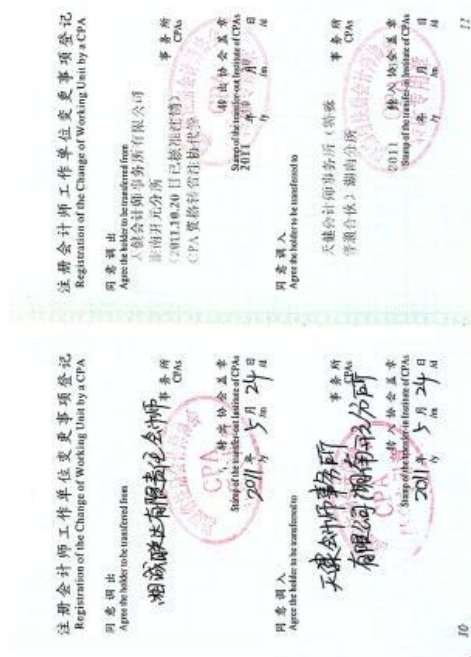 注册会计师工作单位变更事项登记
Registration of the Change of Working Unit by a CPA
同意调出
Agree the holder to be transferred from
湘诚联达有限责任会计师
事务所
CPAs
CPA
转出协会盖章
Stamp of the transfer-out Institute of CPAs
2011年5月24日
/y /m /d
同意调入
Agree the holder to be transferred to
天健会计师事务所
有限公司湖南开元分所
事务所
CPAs
CPA
转入协会盖章
Stamp of the transfer-in Institute of CPAs
2011年5月24日
/y /m /d
10
注册会计师工作单位变更事项登记
Registration of the Change of Working Unit by a CPA
同意调出
Agree the holder to be transferred from
天健会计师事务所有限公司
湖南开元分所
(2011.10.20日已核准注销)
CPA资格转省注协代管
事务所
CPAs
转出协会盖章
Stamp of the transfer-out Institute of CPAs
2011 年 月 日
/y /m /d
同意调入
Agree the holder to be transferred to
天健会计师事务所(特殊
普通合伙)湖南分所
事务所
CPAs
转入协会盖章
Stamp of the transfer-in Institute of CPAs
2011 年 月 日
/y /m /d
11